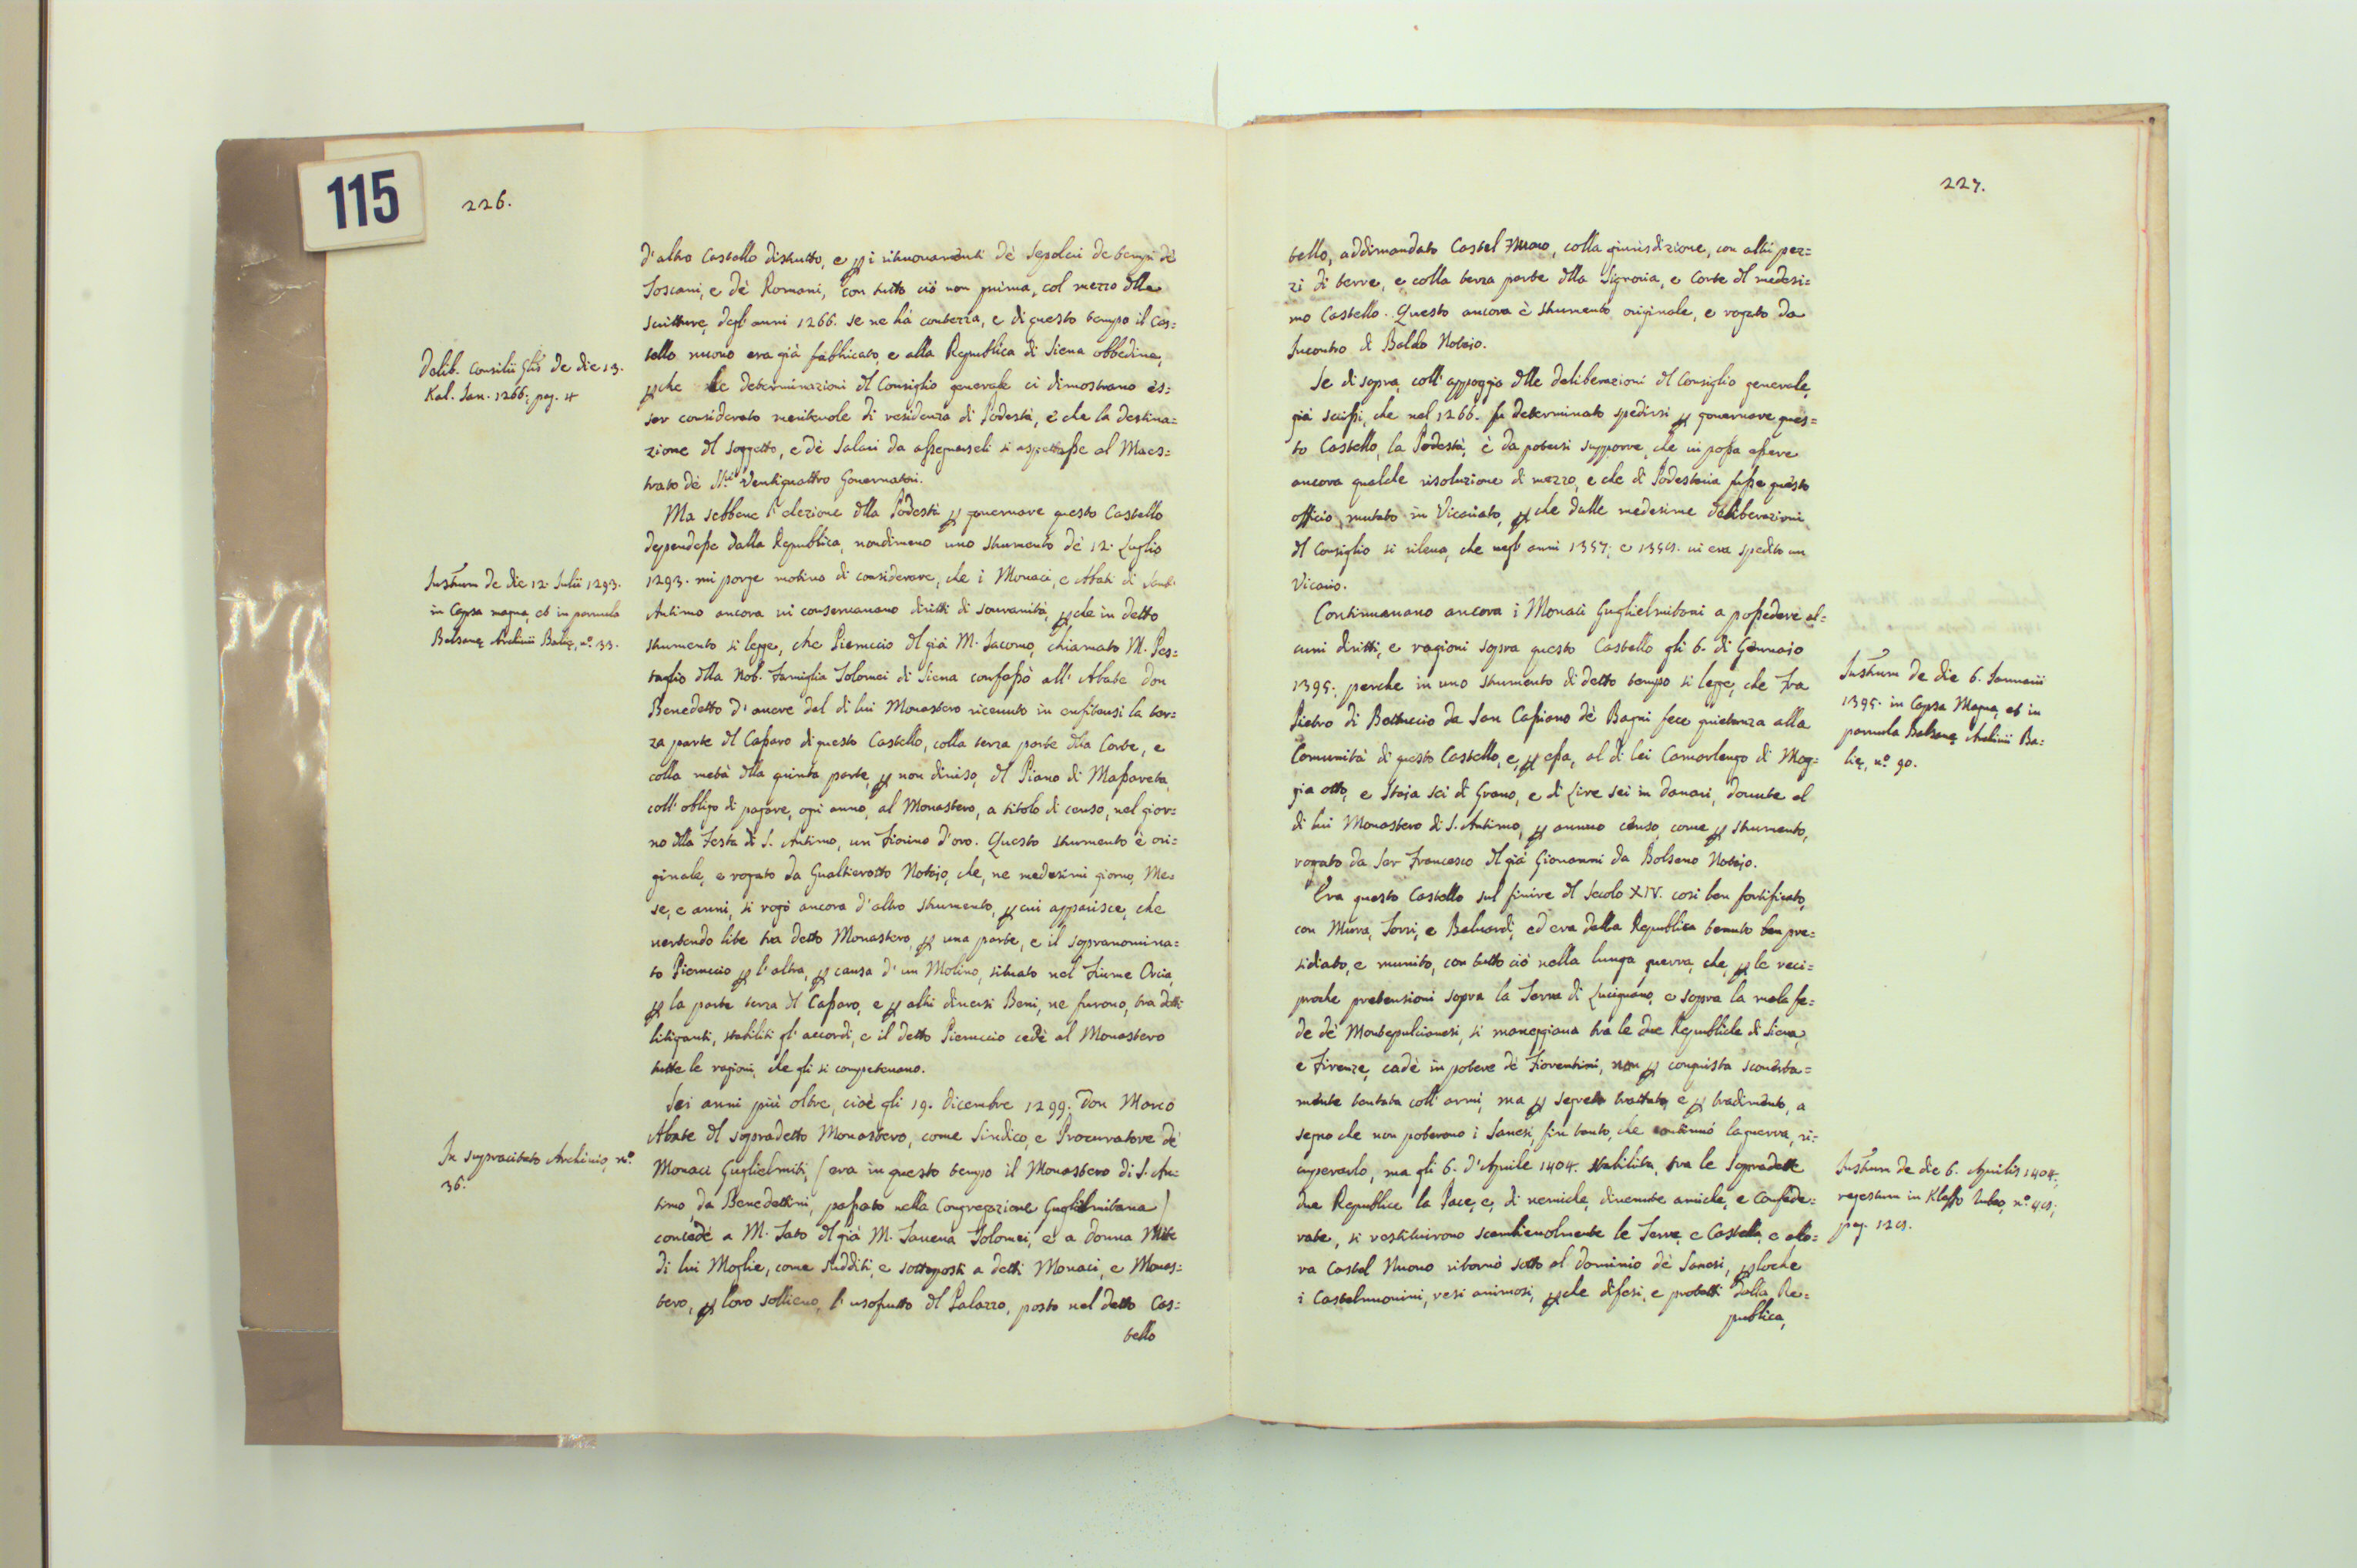 115
226.
d'altro Castello distrutto, e p i ritrovamenti dè Sepolcri de tempi dè
Toscani, e dè Romani, con tutto ciò non prima, col mezzo dlle
scritture, degl'anni 1266. se ne hà contezza, e di questo tempo il Cas=
tello nuovo era già fabbricato, e alla Republica di Siena obbediva,
pche le determinazioni dl Consiglio generale ci dimostrano es=
ser considerato meritevole di residenza di Podestà, e che la destina=
zione dl soggetto, e dè Salari da assegnarseli si aspettasse al Maes=
trato dè Ventiquattro Governatori.
Ma sebbene l'elezione dlla Podestà p governare questo Castello
dependesse dalla Republica, nondimeno uno strumento dè 12. Luglio
1293. mi porge motivo di considerare, che i Monaci, e Abati di Sant'
Antimo ancora vi conservavano diritti di sovranità, pche in detto
strumento si legge, che Pieruccio dl già M. Iacomo, chiamato M. Pas=
taglio dlla Nob. Famiglia Tolomei di Siena confessò all'Abate Don
Benedetto d'avere dal di lui Monastero ricevuto in enfiteusi la ter=
za parte dl Cassaro di questo Castello, colla terza parte dlla Corte, e
colla metà dlla quinta parte, p non diviso, dl Piano di Massareta,
coll'obligo di pagare, ogni anno, al Monastero, a titolo di censo, nel gior=
no dlla Festa di S. Antimo, un Fiorino d'oro. Questo strumento è ori=
ginale, e rogato da Gualtierotto Notajo, che, ne medesimi giorno, Me=
se, e anni, si rogò ancora d'altro strumento, p cui apparisce, che
vertendo lite tra detto Monastero, p una parte, e il sopranomina=
to Pieruccio p l'altra, p causa d'un Molino, situato nel Fiume Orcia,
p la parte terza dl Cassaro, e p altri diversi Beni, ne furono, tra detti
litiganti, stabiliti gl'accordi, e il detto Pieruccio cedè al Monastero
tutte le ragioni, che gli si competevano.
Sei anni più oltre, cioè gli 19. Dicembre 1299. Don Marco
Abate dl sopradetto Monastero, come Sindico, e Procuratore dè
Monaci Guglielmiti, (era in questo tempo il Monastero di S. An=
timo, da Benedettini, passato nella Congregazione Guglielmitana)
concedè a M. Tato dl già M. Tavena Tolomei, e a Donna Mite
di lui Moglie, come sudditi, e sottoposti a detti Monaci, e Monas=
tero, p loro sollievo, l'usofrutto dl Palazzo, posto nel detto Cas=
tello
Delib. Consilii Glis de die 13.
Kal. Jan. 1266; pag. 4
Instrum de die 12. Julii 1293.
in Capsa magna, et in parvula
Balzanę Archivii Balię, n.º 33.
In supracitato Archivio, n.º
36.
227.
tello, addimandato Castel Nuovo, colla giurisdizione, con altri pez=
zi di terre, e colla terza parte dlla Signoria, e Corte dl medesi=
mo Castello. Questo ancora è strumento originale, e rogato da
Incontro di Baldo Notajo.
Se di sopra, coll'appoggio dlle deliberazioni dl Consiglio generale,
già scrissi, che nel 1266. fu determinato spedirsi p governare ques=
to Castello, la Podestà, è da potersi supporre, che vi possa essere
ancora qualche risoluzione di mezzo, e che di Podesteria fusse questo
officio, mutato in Vicariato, pche dalle medesime deliberazioni
dl Consiglio si rileva, che negl'anni 1357; e 1359. vi era spedito un
Vicario.
Continuavano ancora i Monaci Guglielmitani a possedere al=
cuni diritti, e ragioni sopra questo Castello gli 6. di Gennajo
1395; perche in uno strumento di detto tempo si legge, che Fra
Pietro di Bettuccio da San Casciano dè Bagni fece quietanza alla
Comunità di questo Castello, e, p essa, al di lei Camarlengo di Mog=
gia otto, e Staja sei di Grano, e di Lire sei in danari, dovute al
di lui Monastero di S. Antimo, p annuo censo, come p strumento,
rogato da Ser Francesco dl già Giovanni da Bolseno Notajo.
Era questo Castello sul finire dl secolo XIV. così ben fortificato,
con Mura, Torri, e Baluardi, ed era dalla Republica tenuto ben pre=
sidiato, e munito, con tutto ciò nella lunga guerra, che, p le reci=
proche pretensioni sopra la Terra di Lucignano, e sopra la mala fe=
de dè Montepulcianesi, si maneggiava tra le due Republiche di Siena,
e Firenze, cadè in potere dè Fiorentini, non p conquista
mente tentata coll'armi, ma p segreto trattato, e p tradimento, a
segno che non poterono i Sanesi, fin tanto, che continuò la guerra, ri=
cuperarlo, ma gli 6. d'Aprile 1404. stabilita, tra le Sopradette
due Republice la Pace, e, di nemiche, divenute amiche, e Confede=
rate, si restituirono scambievolmente le Terre, e Castella, e allo=
ra Castel Nuovo ritornò sotto al dominio dè Sanesi, ploche
i Castelnuovini, resi animosi, pche difesi, e protetti dalla Re=
publica,
Instrum de die 6. Januarii
1395. in Capsa Magna, et in
parvula Balzanę Archivii Ba=
lię, n.º 90.
Instrum de die 6. Aprilis 1404;
regestum in Kleffo Rubeo, n.º 49;
pag. 129.